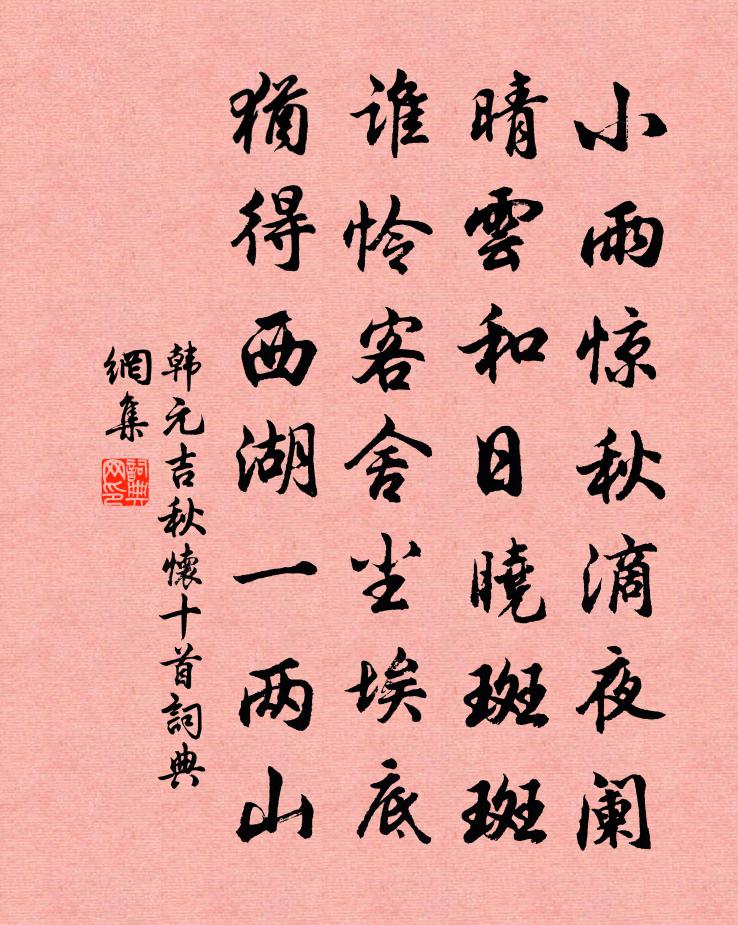 小雨惊秋滴夜阑
晴雲和日曉斑斑
谁怜客舍尘埃底
猶得西湖一两山
韩元吉秋懷十首詞典
網集
詞典
网印